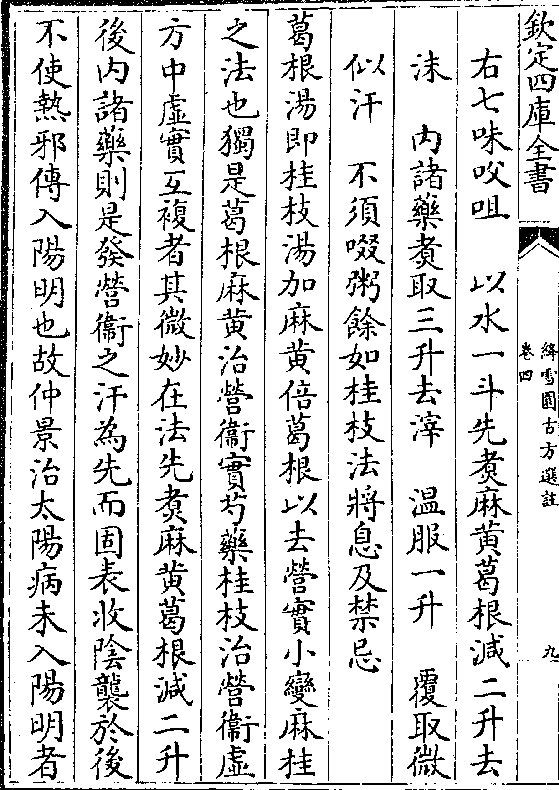 欽定四庫全書
絳雪園古方選註
卷四
九
右七味㕮咀 以水一斗先煑麻黄葛根減二升去
沫 内諸藥煑取三升去滓 温服一升 覆取微
似汗 不須啜粥餘如桂枝法將息及禁忌
葛根湯即桂枝湯加麻黄倍葛根以去營實小變麻桂
之法也獨是葛根麻黄治營衞實芍藥桂枝治營衞虛
方中虛實互複者其微妙在法先煑麻黄葛根減二升
後内諸藥則是發營衞之汗為先而固表收陰襲於後
不使熱邪傳入陽明也故仲景治太陽病未入陽明者